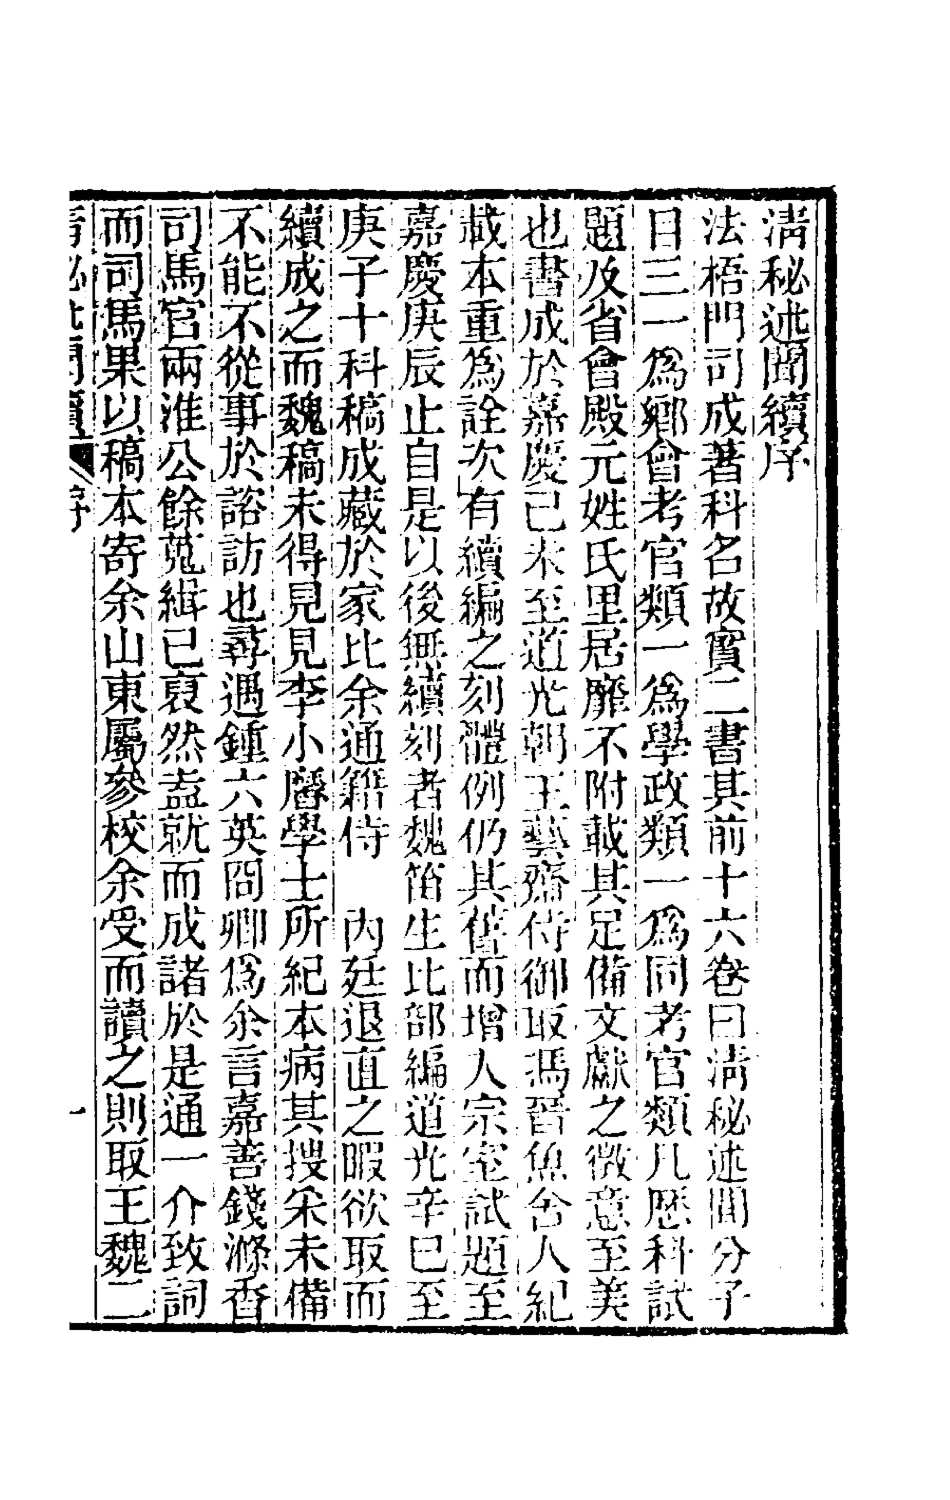 淸秘述聞續序
法梧門司成著科名故實二書其前十六卷曰淸秘述聞分子
目三一爲鄉會考官類一爲學政類一爲同考官類凡歷科試
題及省會殿元姓氏里居靡不附載其足備文獻之徵意至美
也書成於嘉慶己未至道光朝王藝齋侍御取馮晉魚舍人紀
載本重爲詮次有續編之刻體例仍其舊而增入宗室試題至
嘉慶庚辰止自是以後無續刻者魏笛生比部編道光辛巳至
庚子十科稿成藏於家比余通籍侍　內廷退直之暇欲取而
續成之而魏稿未得見見李小磨學士所紀本病其搜采未備
不能不從事於諮訪也尋遇鍾六英冏卿爲余言嘉善錢滌香
司馬官兩淮公餘蒐緝已裒然盍就而成諸於是通一介致詞
而司馬果以稿本寄余山東屬參校余受而讀之則取王魏二
淸秘述聞續 序 一